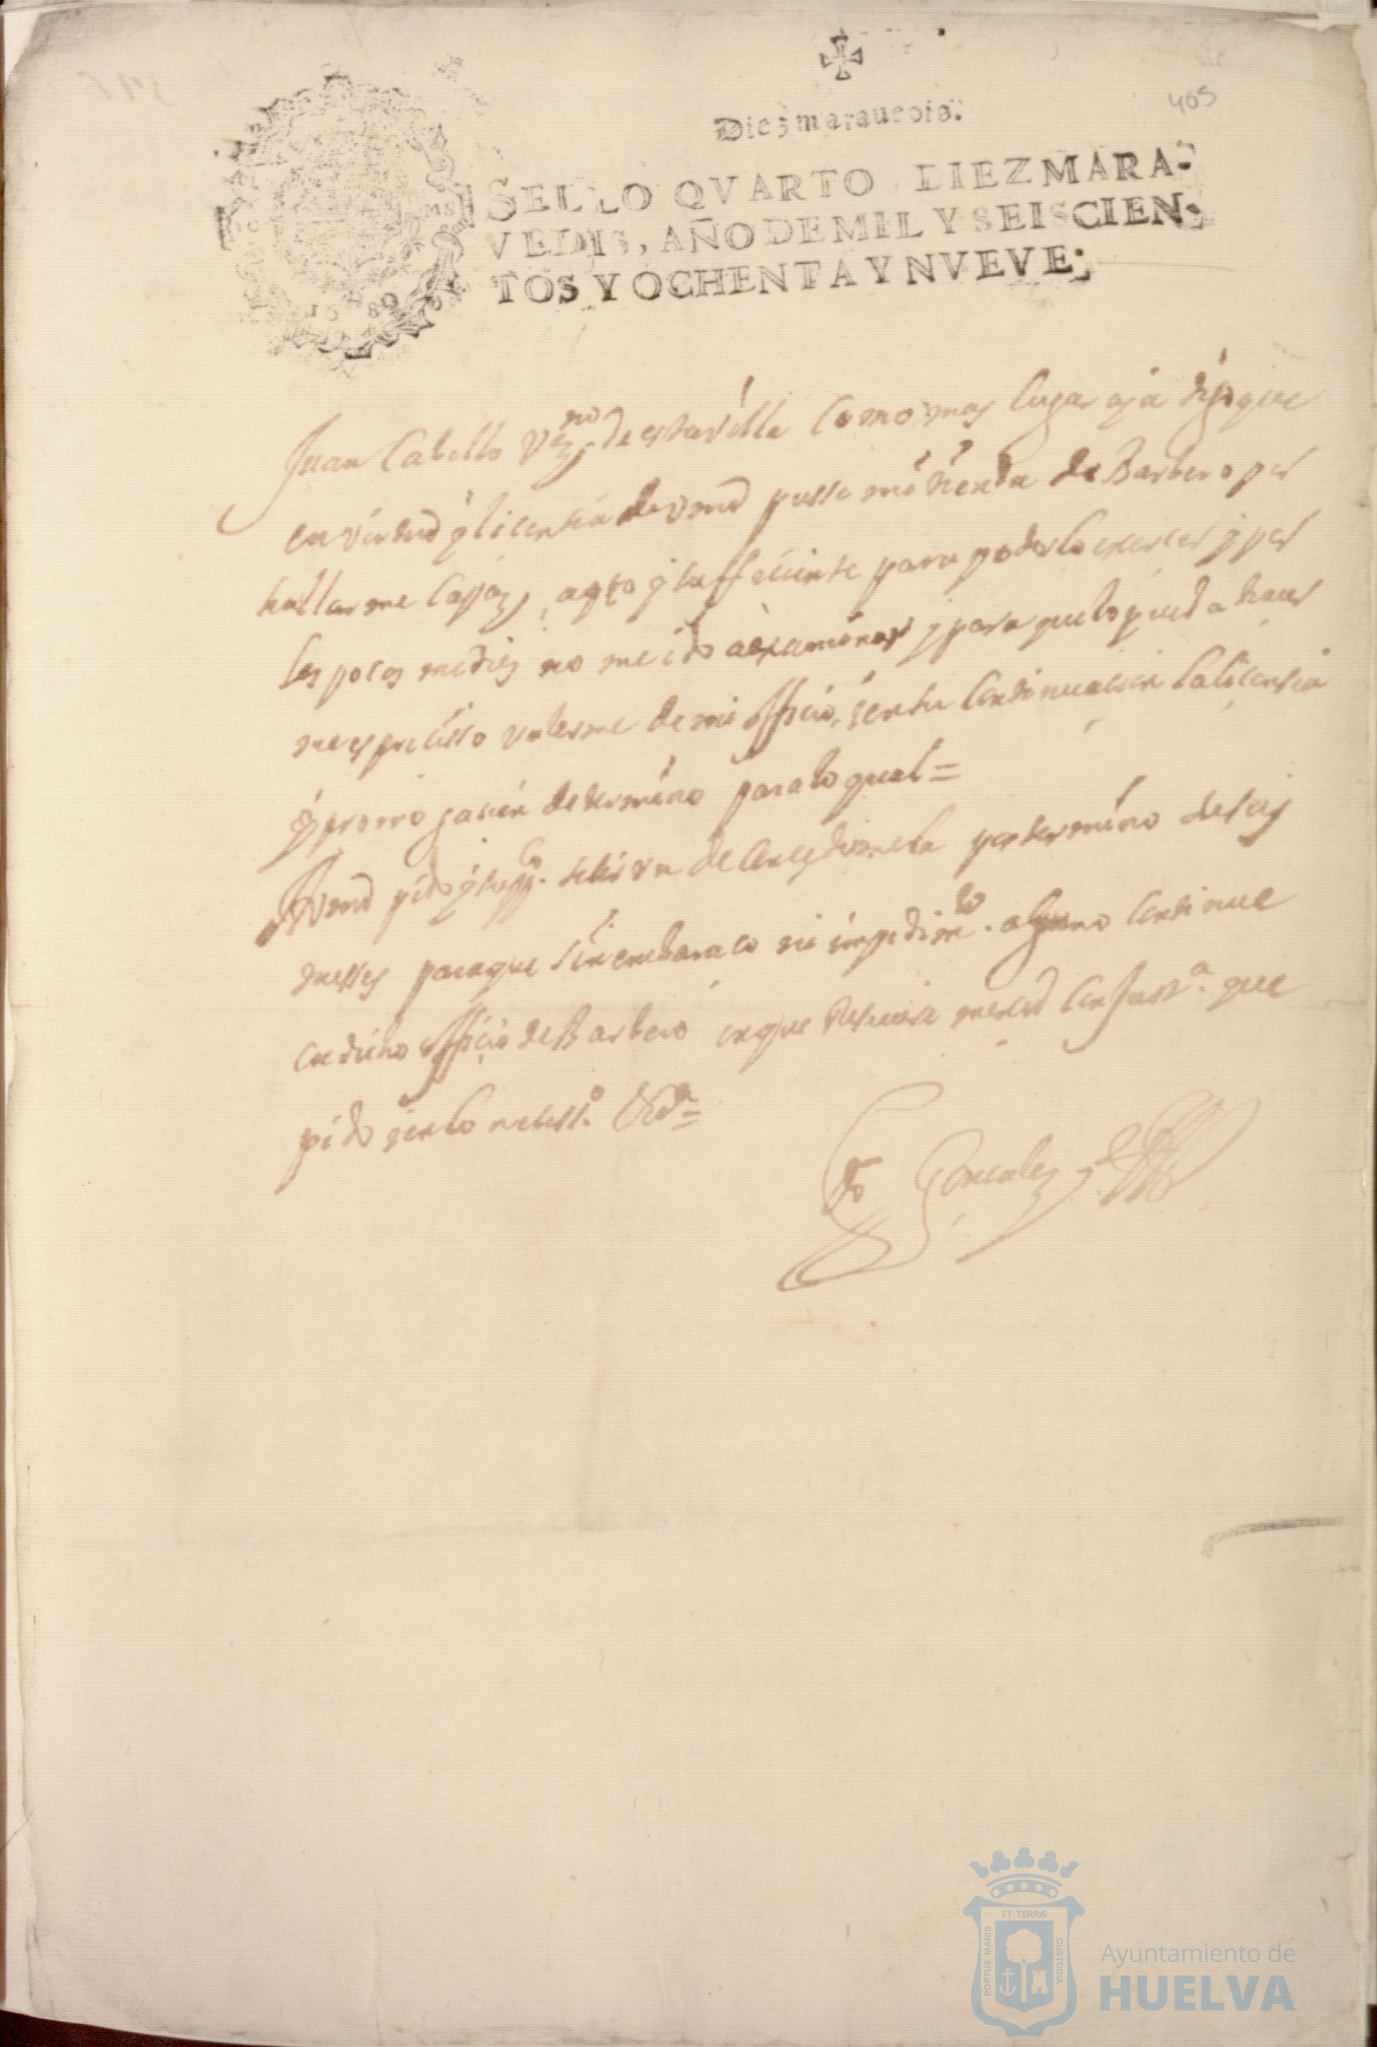 405
Diez maraueois.
SELLO QVARTO DIEZ MARA-
VEDIS, AÑO DE MIL Y SEISCIEN-
TOS Y OCHENTA Y NVEVE.
1689
Juan Cabello vezno de esta villa Como mas lugar aja digo que
en virdud y licensia de vmd pusse mi tienda de Barbero por
hallarme Capaz, apto y suffeciente para poderlo exerser y por
los pocos medios no me e ido a examinar y para que lo pueda haser
me es presisso valerme de mi officio, en su Continuacion la licensia
y prorrogasion de termino para lo qual=
A Vmd pido y suppco. se sirva de Consedermela por termino de seis
messes para que sin embaraco ni impedimto. alguno Continue
en dicho officio de Barbero en que resivire mersed Con Justa. que
pido y en lo nesesso. &a=
do Gonsales
ET TERRÆ
PORTUS MARIS
CUSTODIA
Ayuntamiento de
HUELVA